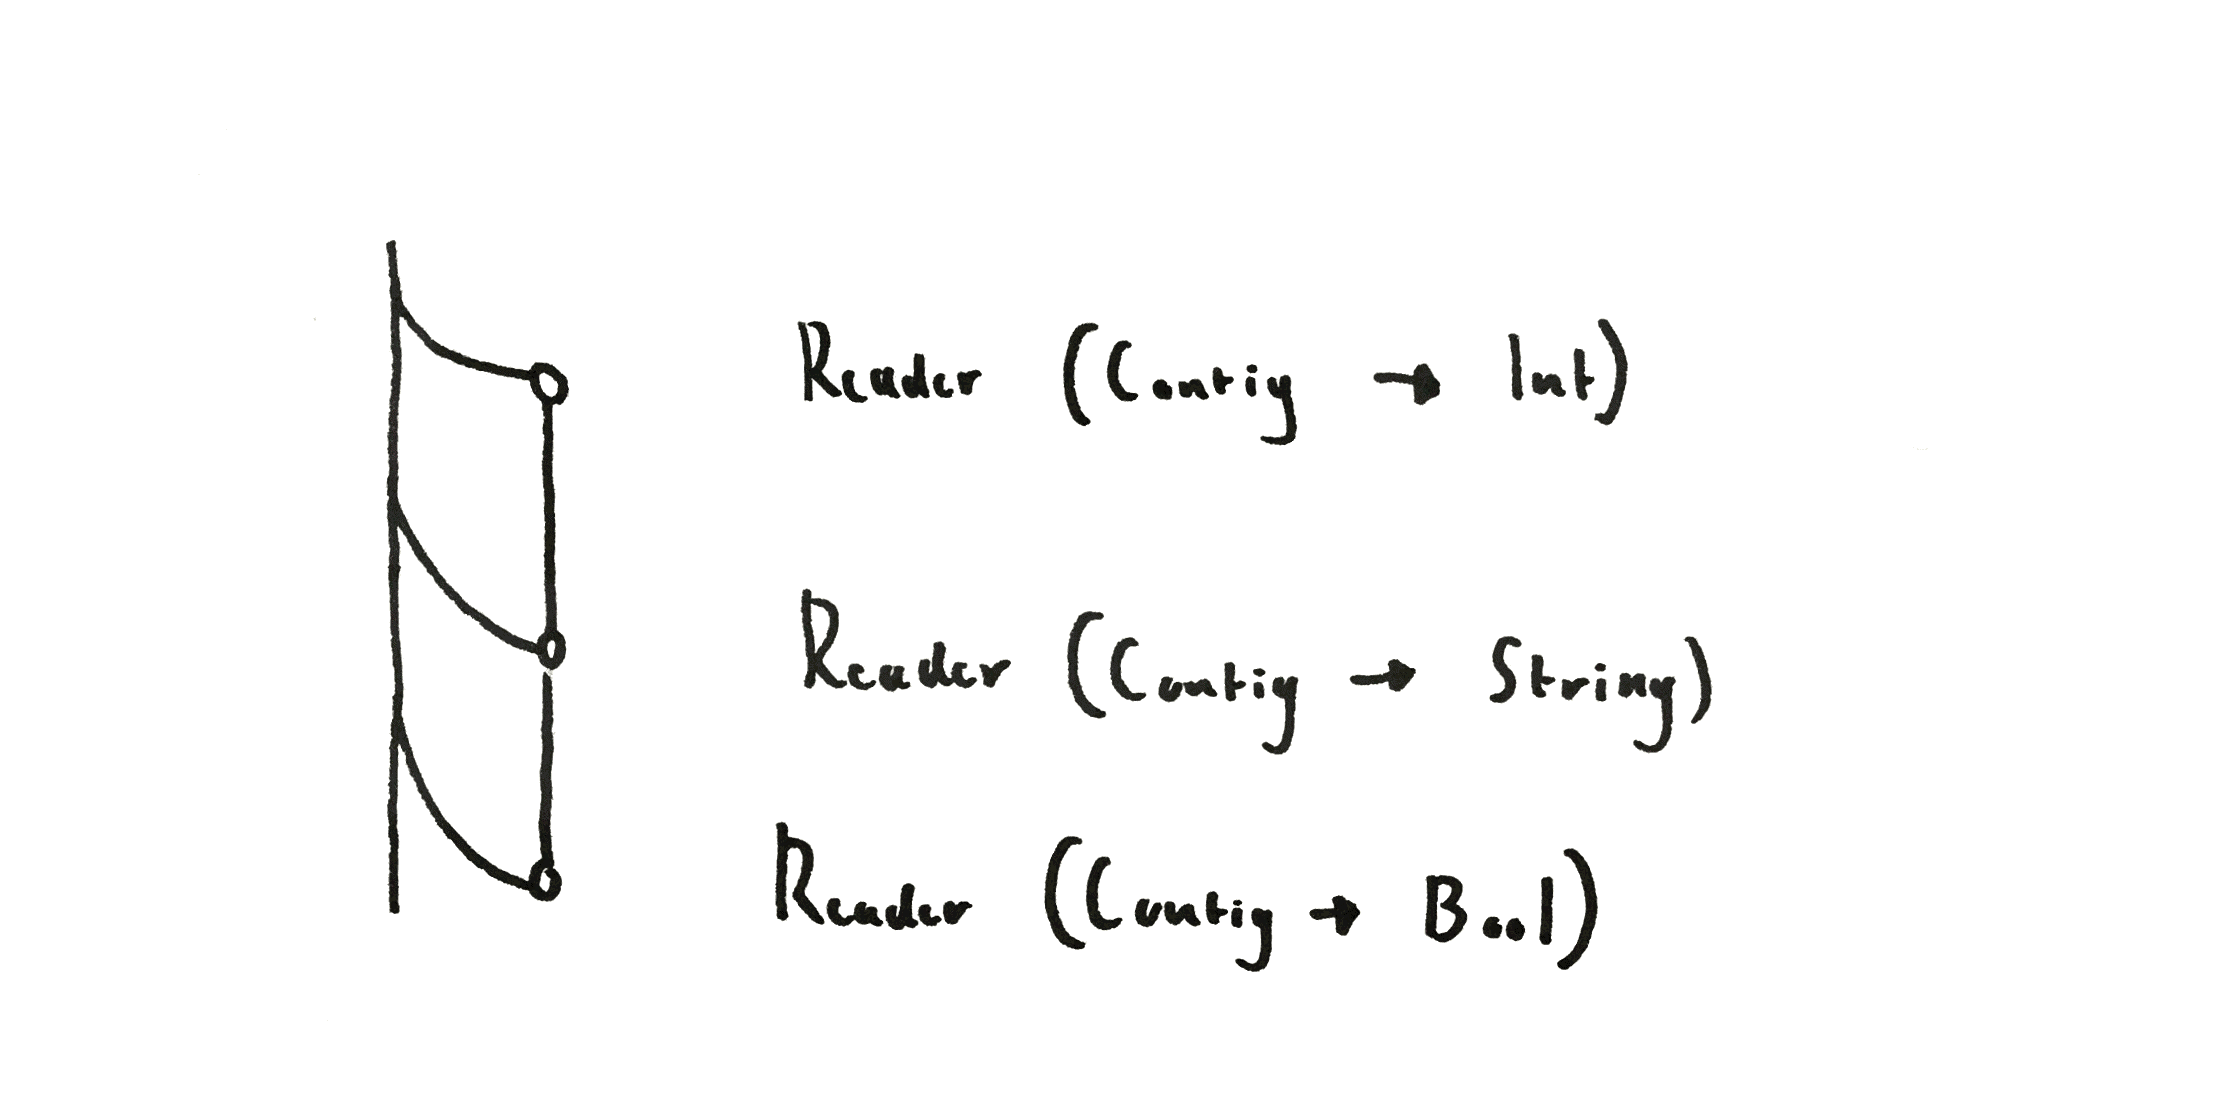 Reader (Contig → Int)
Reader (Contig → String)
Reader (Contig → Bool)